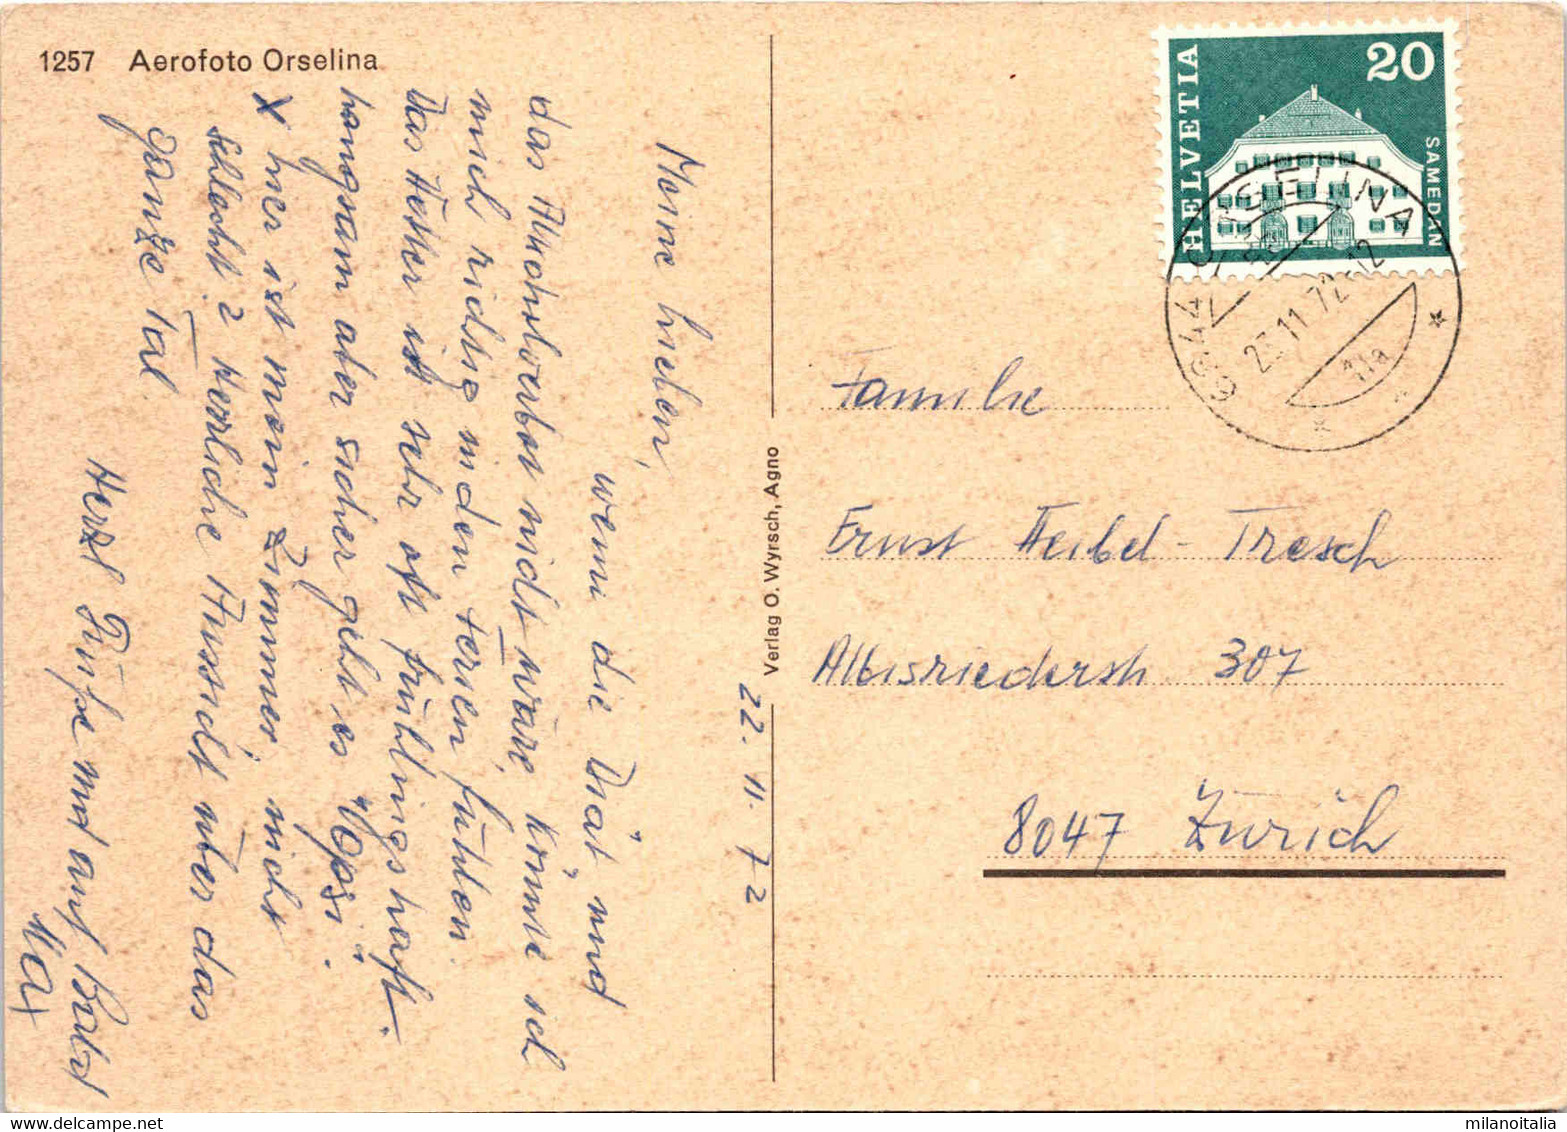 1257 Aerofoto Orselina
Meine Lieben,
wenn die Diät und
das Alkoholverbot nicht wäre, könnte ich
mich richtig in den Ferien fühlen.
Das Wetter ist sehr oft frühlingshaft.
Langsam aber sicher geht es "Opsi".
X hier ist mein Zimmer, nicht
schlecht? Herrliche Aussicht über das
ganze Tal.
Herzl Grüße und auf Bald
Max
Verlag O. Wyrsch, Agno
22. 11. 72
HELVETIA
20
SAMEDAN
6644 ORSELINA
23.11.72-12
11a
Familie
Ernst Heibel-Tresch
Albisriederstr 307
8047 Zürich
milanoitalia